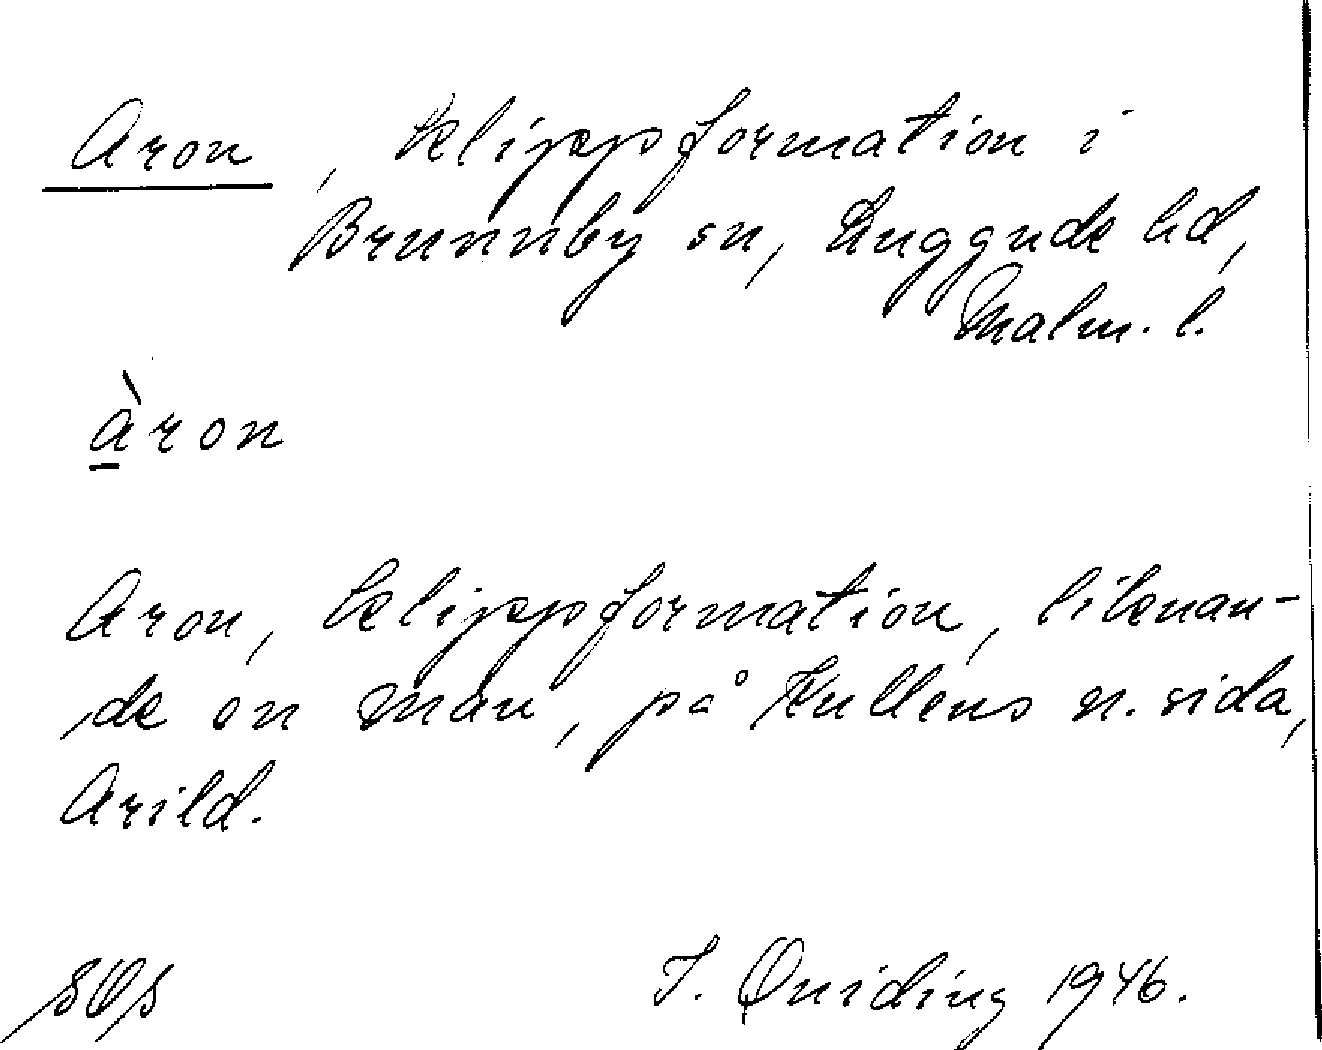 Aron, klippformation i
Brunnby sn, Luggude hd,
Malm. l.
àron
Aron, klippformation, liknan-
de en man, på Kullens n. sida,
Arild.
I. Quiding 1946.